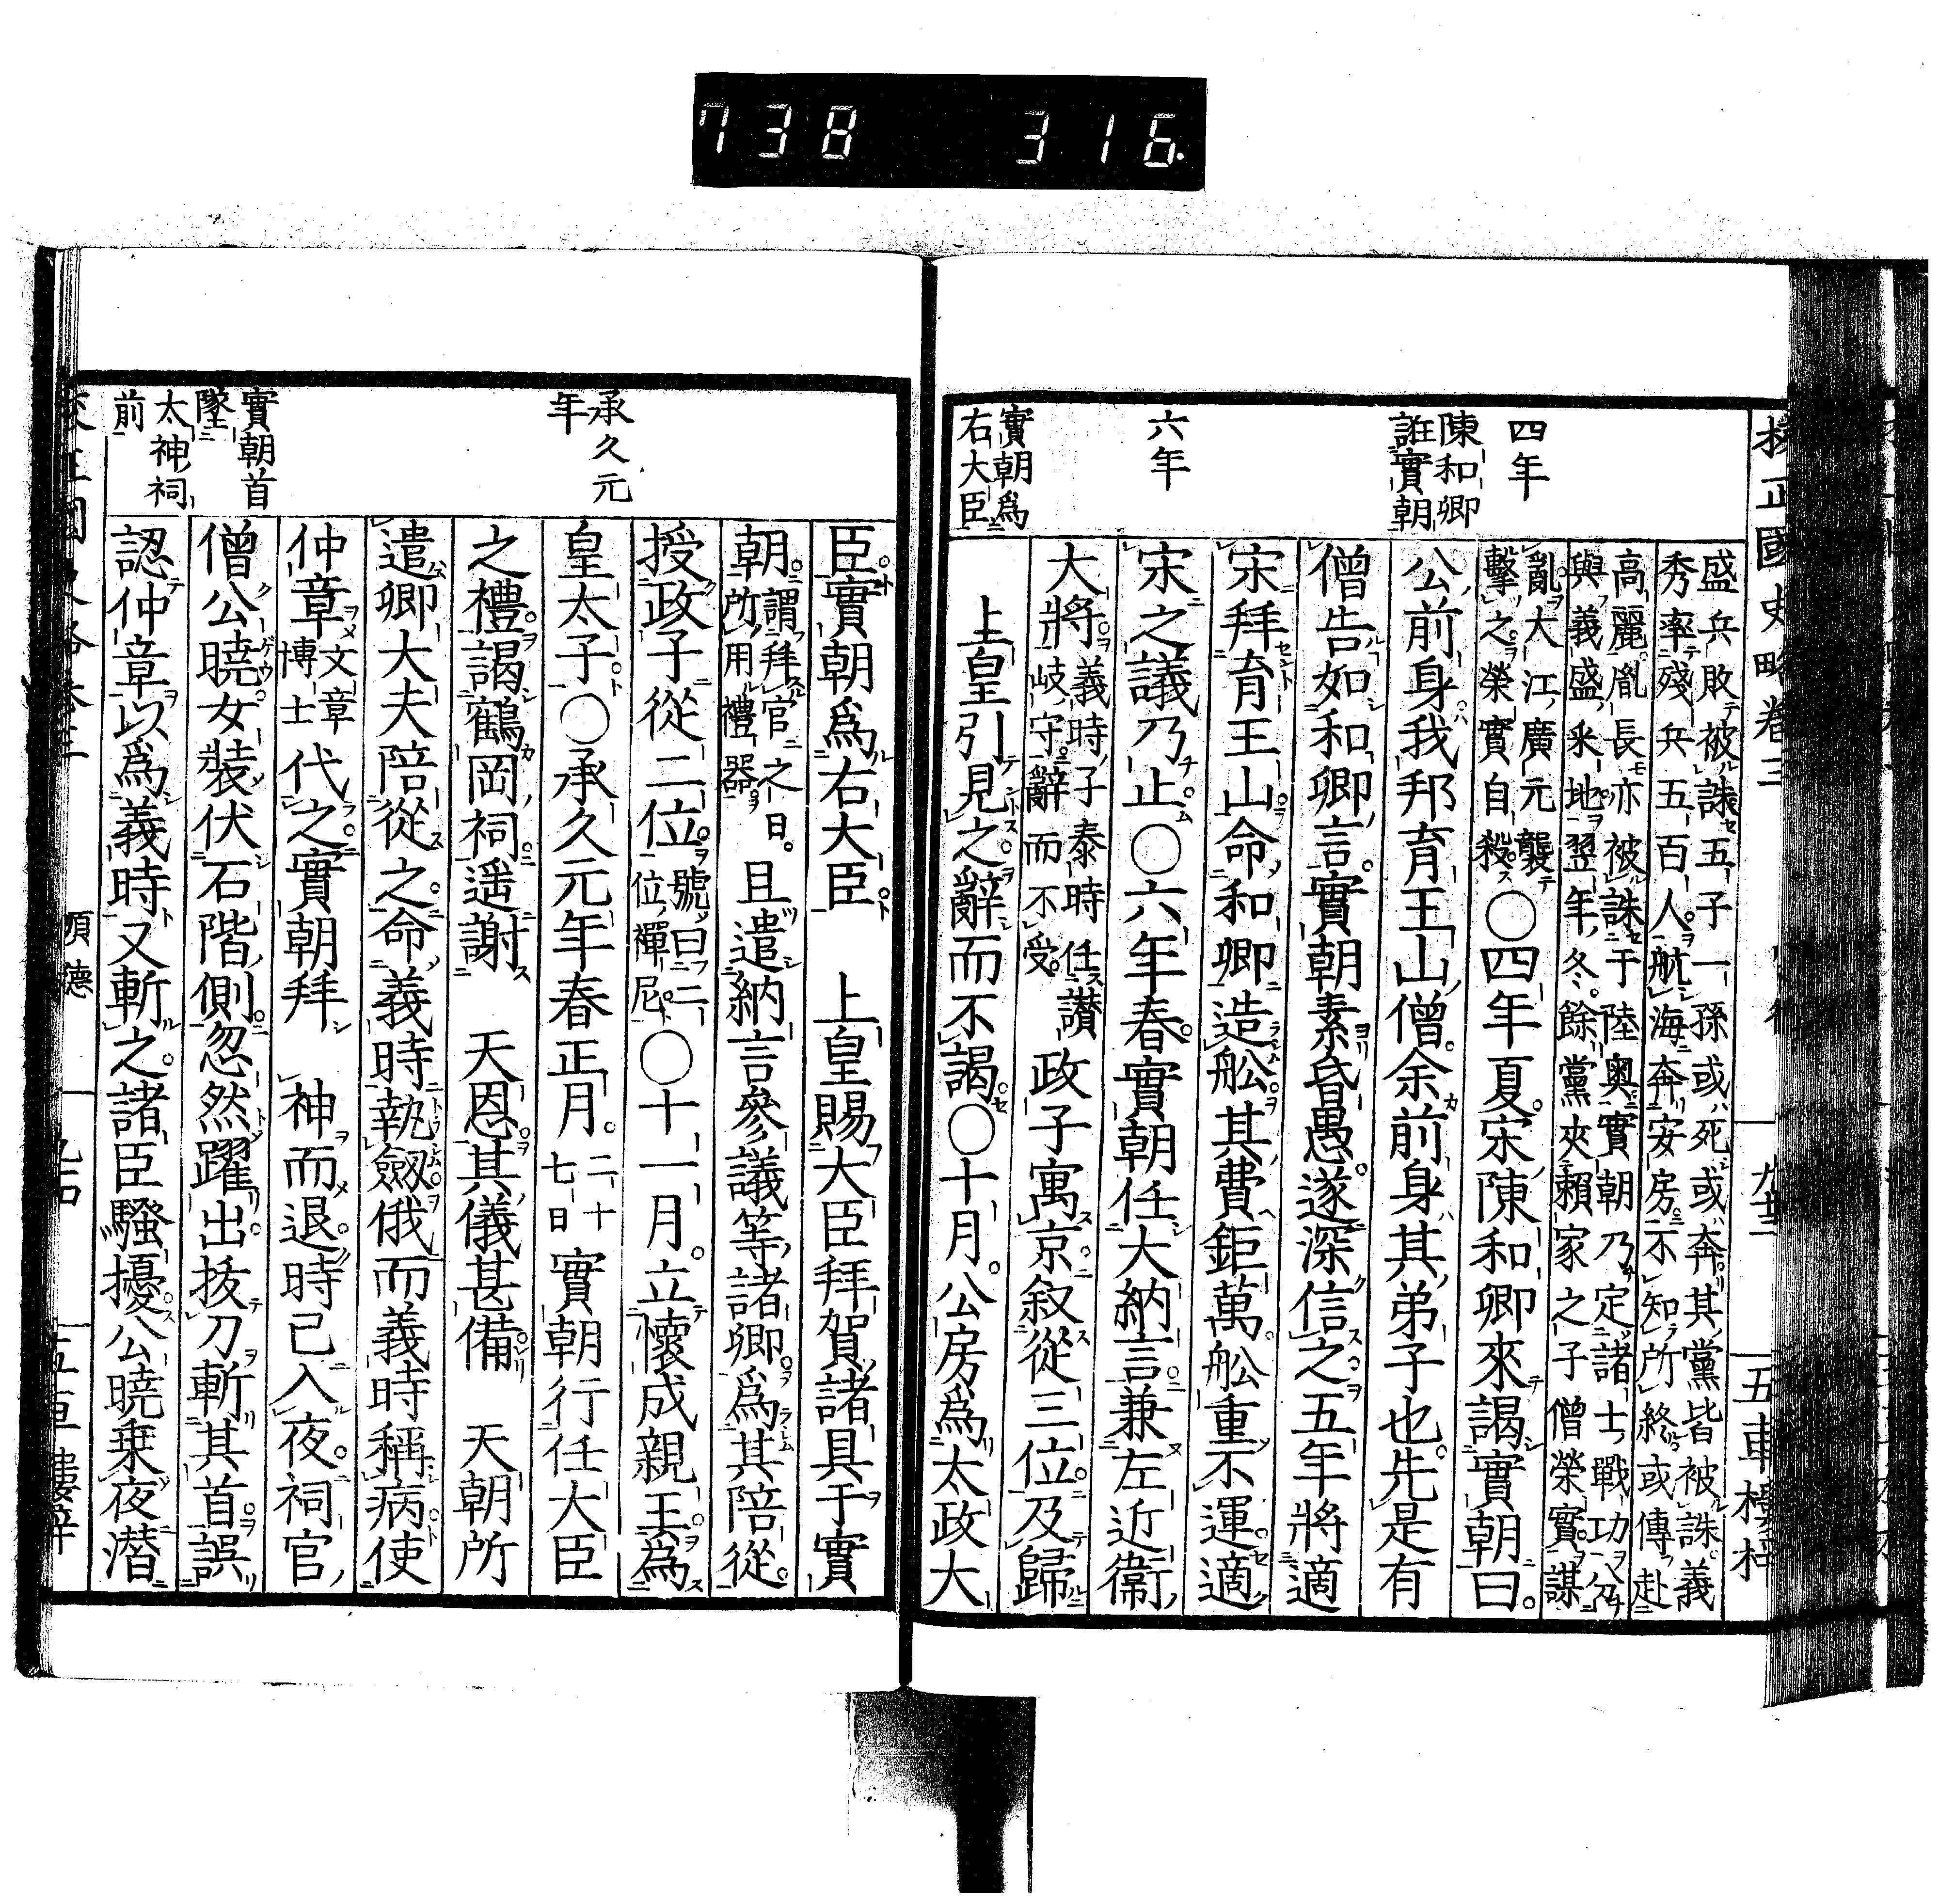 738 316.
校正國史略卷三
九十三
五車樓梓
四年
陳和卿
誑實朝
六年
實朝爲
右大臣
盛兵敗被誅五子一孫或死或奔其黨皆被誅義
秀率殘兵五百人航海奔安房不知所終或傳赴
高麗胤長亦被誅于陸奧實朝乃定諸士戰功分
與義盛釆地翌年冬餘黨夾賴家之子僧榮實謀
亂大江廣元襲
擊之榮實自殺
○四年夏宋陳和卿來謁實朝曰
公前身我邦育王山僧余前身其弟子也先是有
僧告如和卿言實朝素昏愚遂深信之五年將適
宋拜育王山命和卿造舩其費鉅萬舩重不運適
宋之議乃止○六年春實朝任大納言兼左近衞
大將義時子泰時任讃
岐守辭而不受
政子寓京敘從三位及歸
上皇引見之辭而不謁○十月公房爲太政大
承久元
年
實朝首
墜
太神祠
前
臣實朝爲右大臣 上皇賜大臣拜賀諸具于實
朝謂拜官之日
所用禮器
且遣納言參議等諸卿爲其陪從
授政子從二位號曰二
位禪尼
○十一月立懷成親王爲
皇太子○承久元年春正月二十
七日
實朝行任大臣
之禮謁鶴岡祠遥謝 天恩其儀甚備 天朝所
遣卿大夫陪從之命義時執劔俄而義時稱病使
仲章文章
博士
代之實朝拜 神而退時已入夜祠官
僧公曉女裝伏石階側忽然躍出拔刀斬其首誤
認仲章以爲義時又斬之諸臣騷擾公曉乗夜潜
順德
九十四
五車樓梓